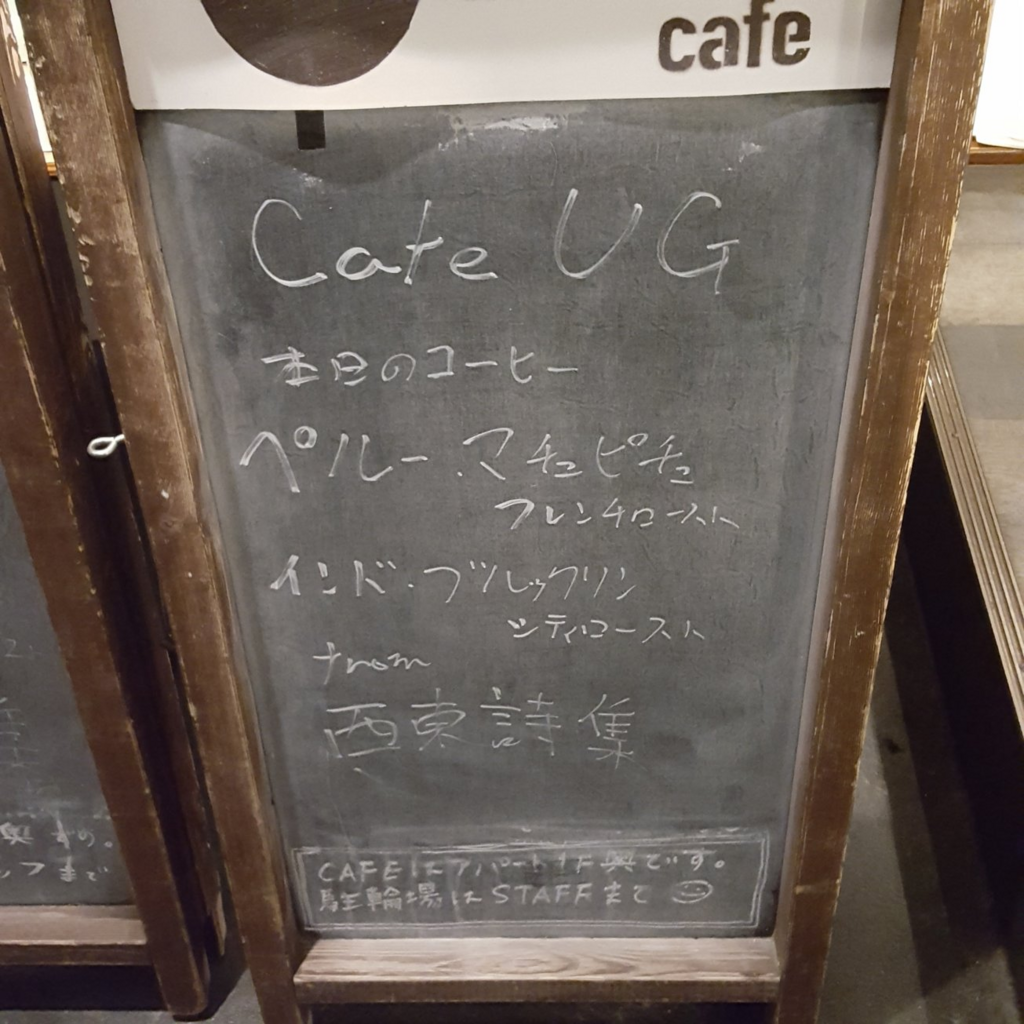 cafe
Cafe UG
本日のコーヒー
ペルー・マチュピチュ
フレンチロースト
インド・ブルックリン
シティロースト
from
西東詩集
CAFEはアパート1F奥です。
駐輪場はSTAFFまで
奥です。
フまで